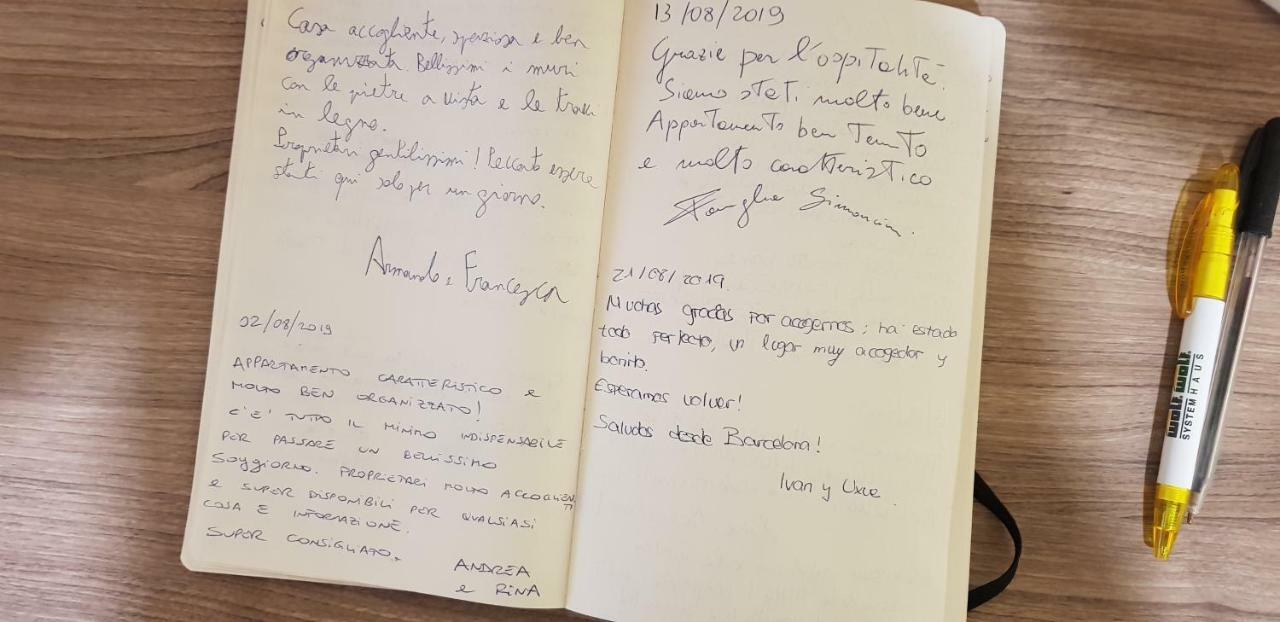 Casa accogliente, spaziosa e ben
organizzata. Bellissimi i muri
con le pietre a vista e le travi
in legno.
Proprietari gentilissimi! Peccato essere
stati qui solo per un giorno.
Armando e Francesca
02/08/2019
APPARTAMENTO CARATTERISTICO e
MOLTO BEN ORGANIZZATO!
C'E' TUTTO IL MINIMO INDISPENSABILE
PER PASSARE UN BELLISSIMO
SOGGIORNO. PROPRIETARI MOLTO ACCOGLIENTI
e SUPER DISPONIBILI PER QUALSIASI
COSA E INFORMAZIONE.
SUPER CONSIGLIATO.
ANDREA
e RINA
13/08/2019
Grazie per l'ospitalità.
Siamo stati molto bene
Appartamento ben tenuto
e molto caratteristico
Famiglia Simoncini
21/08/2019
Muchas gracias por acogernos; ha estado
todo perfecto, un lugar muy acogedor y
bonito.
Esperamos volver!
Saludos desde Barcelona!
Ivan y
wolf. wolf.
SYSTEMHAUS